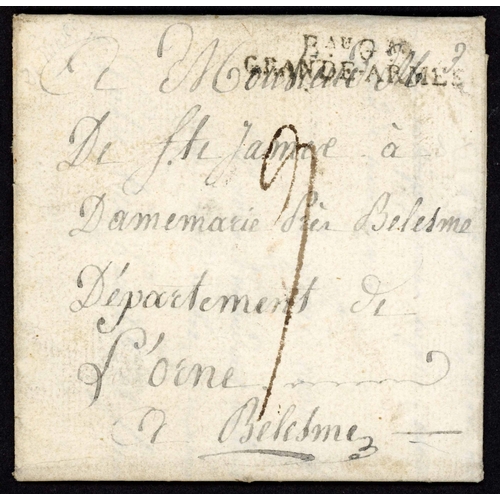 Bau G al
GRANDE-ARMÉE
A Monsieur
De Ste Jamme à
Damemarie Près Belesme
Département de
L'orne
a Bélesme
9